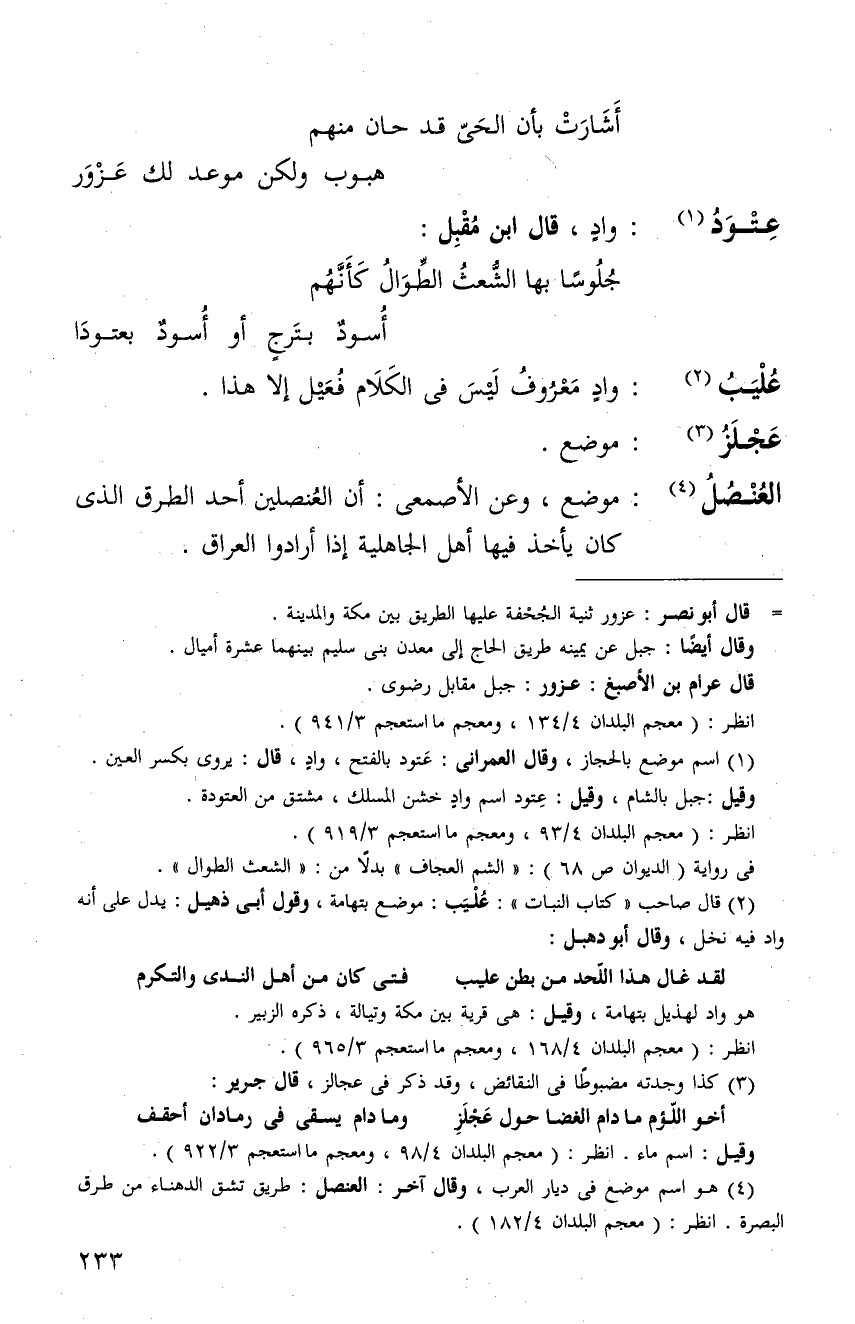 أَشَارَتْ بأن الحَىّ قد حان منهم
هبوب ولكن موعد لك عَزْوَر
عِتْوَدُ (١) : وادٍ ، قال ابن مُقْبِل :
جُلُوسًا بها الشُّعثُ الطِّوَالُ كَأَنَّهُم
أُسودٌ بتَرجٍ أو أُسودٌ بعتودَا
عُلْيَبُ (٢) : وادٍ مَعْرُوفُ لَيْسَ فى الكَلَام فُعَيْل إلا هذا .
عَجْلَزُ (٣) : موضع .
العُنْصُلُ (٤) : موضع ، وعن الأصمعى : أن العُنصلين أحد الطرق الذى
كان يأخذ فيها أهل الجاهلية إذا أرادوا العراق .
= قال أبو نصر : عزور ثنية الجُحْفة عليها الطريق بين مكة والمدينة .
وقال أيضًا : جبل عن يمينه طريق الحاج إلى معدن بنى سليم بينهما عشرة أميال .
قال عرام بن الأصبغ : عزور : جبل مقابل رضوى .
انظر : ( معجم البلدان ١٣٤/٤ ، ومعجم ما استعجم ٩٤١/٣ ) .
(١) اسم موضع بالحجاز ، وقال العمرانى : عَتود بالفتح ، وادٍ ، قال : يروى بكسر العين .
وقيل :جبل بالشام ، وقيل : عِتود اسم وادٍ خشن المسلك ، مشتق من العتودة .
انظر : ( معجم البلدان ٩٣/٤ ، ومعجم ما استعجم ٩١٩/٣ ) .
فى رواية ( الديوان ص ٦٨ ) : « الشم العجاف » بدلًا من : « الشعث الطوال » .
(٢) قال صاحب « كتاب النبات » : عُلْيَب : موضع بتهامة ، وقول أبى ذهيل : يدل على أنه
واد فيه نخل ، وقال أبو دهبل :
لقد غال هذا اللّحد من بطن عليب فتى كان من أهل الندى والتكرم
هو واد لهذيل بتهامة ، وقيل : هى قرية بين مكة وتبالة ، ذكره الزبير .
انظر : ( معجم البلدان ١٦٨/٤ ، ومعجم ما استعجم ٩٦٥/٣ ) .
(٣) كذا وجدته مضبوطًا فى النقائض ، وقد ذكر فى عجالز ، قال جرير :
أخو اللّؤم ما دام الغضا حول عَجْلَزِ وما دام يسقى فى رمادان أحقف
وقيل : اسم ماء . انظر : ( معجم البلدان ٩٨/٤ ، ومعجم ما استعجم ٩٢٢/٣ ) .
(٤) هو اسم موضع فى ديار العرب ، وقال آخر : العنصل : طريق تشق الدهناء من طرق
البصرة . انظر : ( معجم البلدان ١٨٢/٤ ) .
٢٣٣